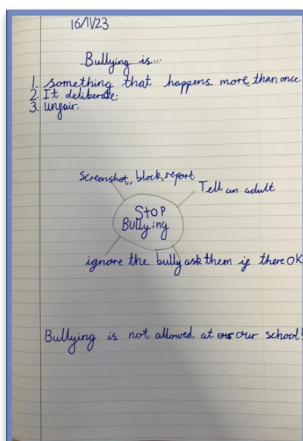 16/11/23
Bullying is...
1. something that happens more than once.
2. It deliberate.
3. unfair.
Screenshot, block, report
Tell an adult
Stop
Bullying
ignore the bully
ask them if there OK
Bullying is not allowed at our school!